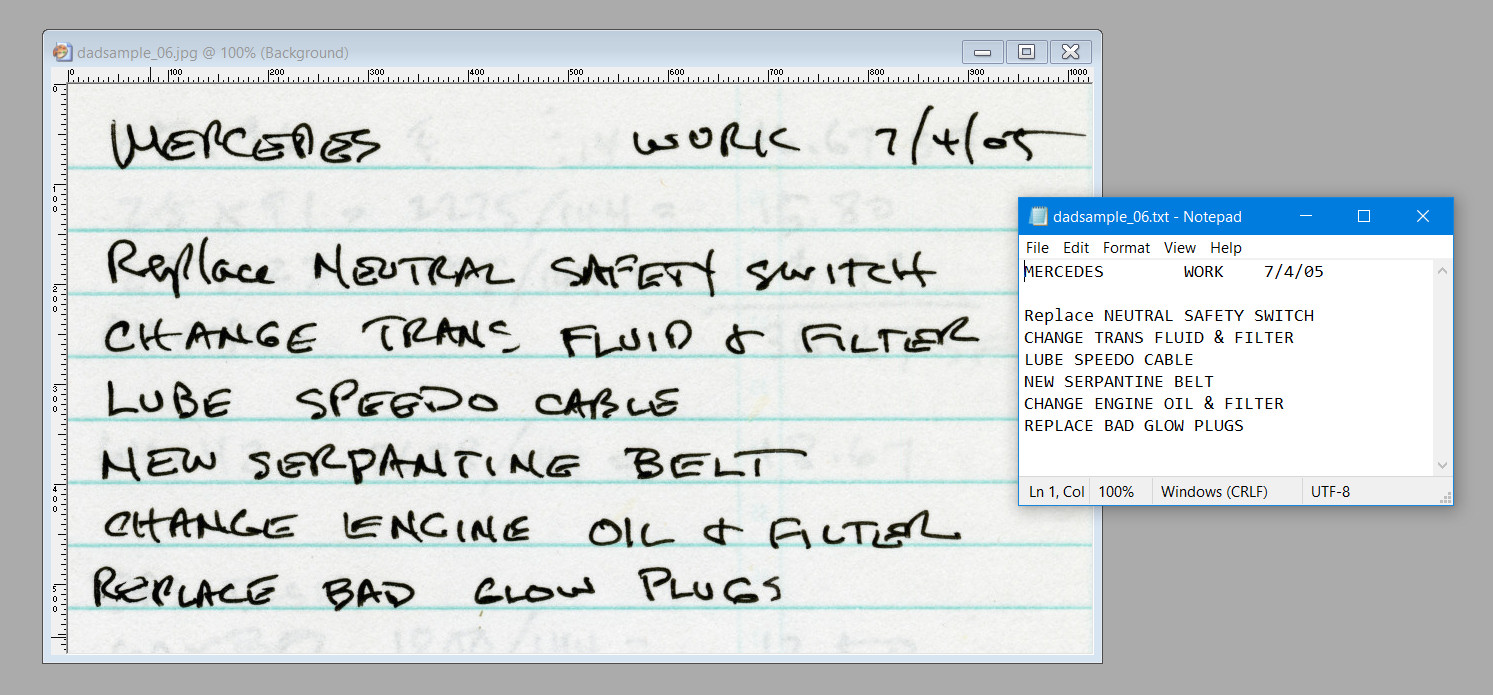 dadsample_06.jpg @ 100% (Background)
0 100 200 300 400 500 600 700 800 900 1000
0
100
200
300
400
500
MERCEDES WORK 7/4/05
Replace NEUTRAL SAFETY SWITCH
CHANGE TRANS FLUID & FILTER
LUBE SPEEDO CABLE
NEW SERPANTINE BELT
CHANGE ENGINE OIL & FILTER
REPLACE BAD GLOW PLUGS
dadsample_06.txt - Notepad
File Edit Format View Help
MERCEDES WORK 7/4/05
Replace NEUTRAL SAFETY SWITCH
CHANGE TRANS FLUID & FILTER
LUBE SPEEDO CABLE
NEW SERPANTINE BELT
CHANGE ENGINE OIL & FILTER
REPLACE BAD GLOW PLUGS
Ln 1, Col 100% Windows (CRLF) UTF-8